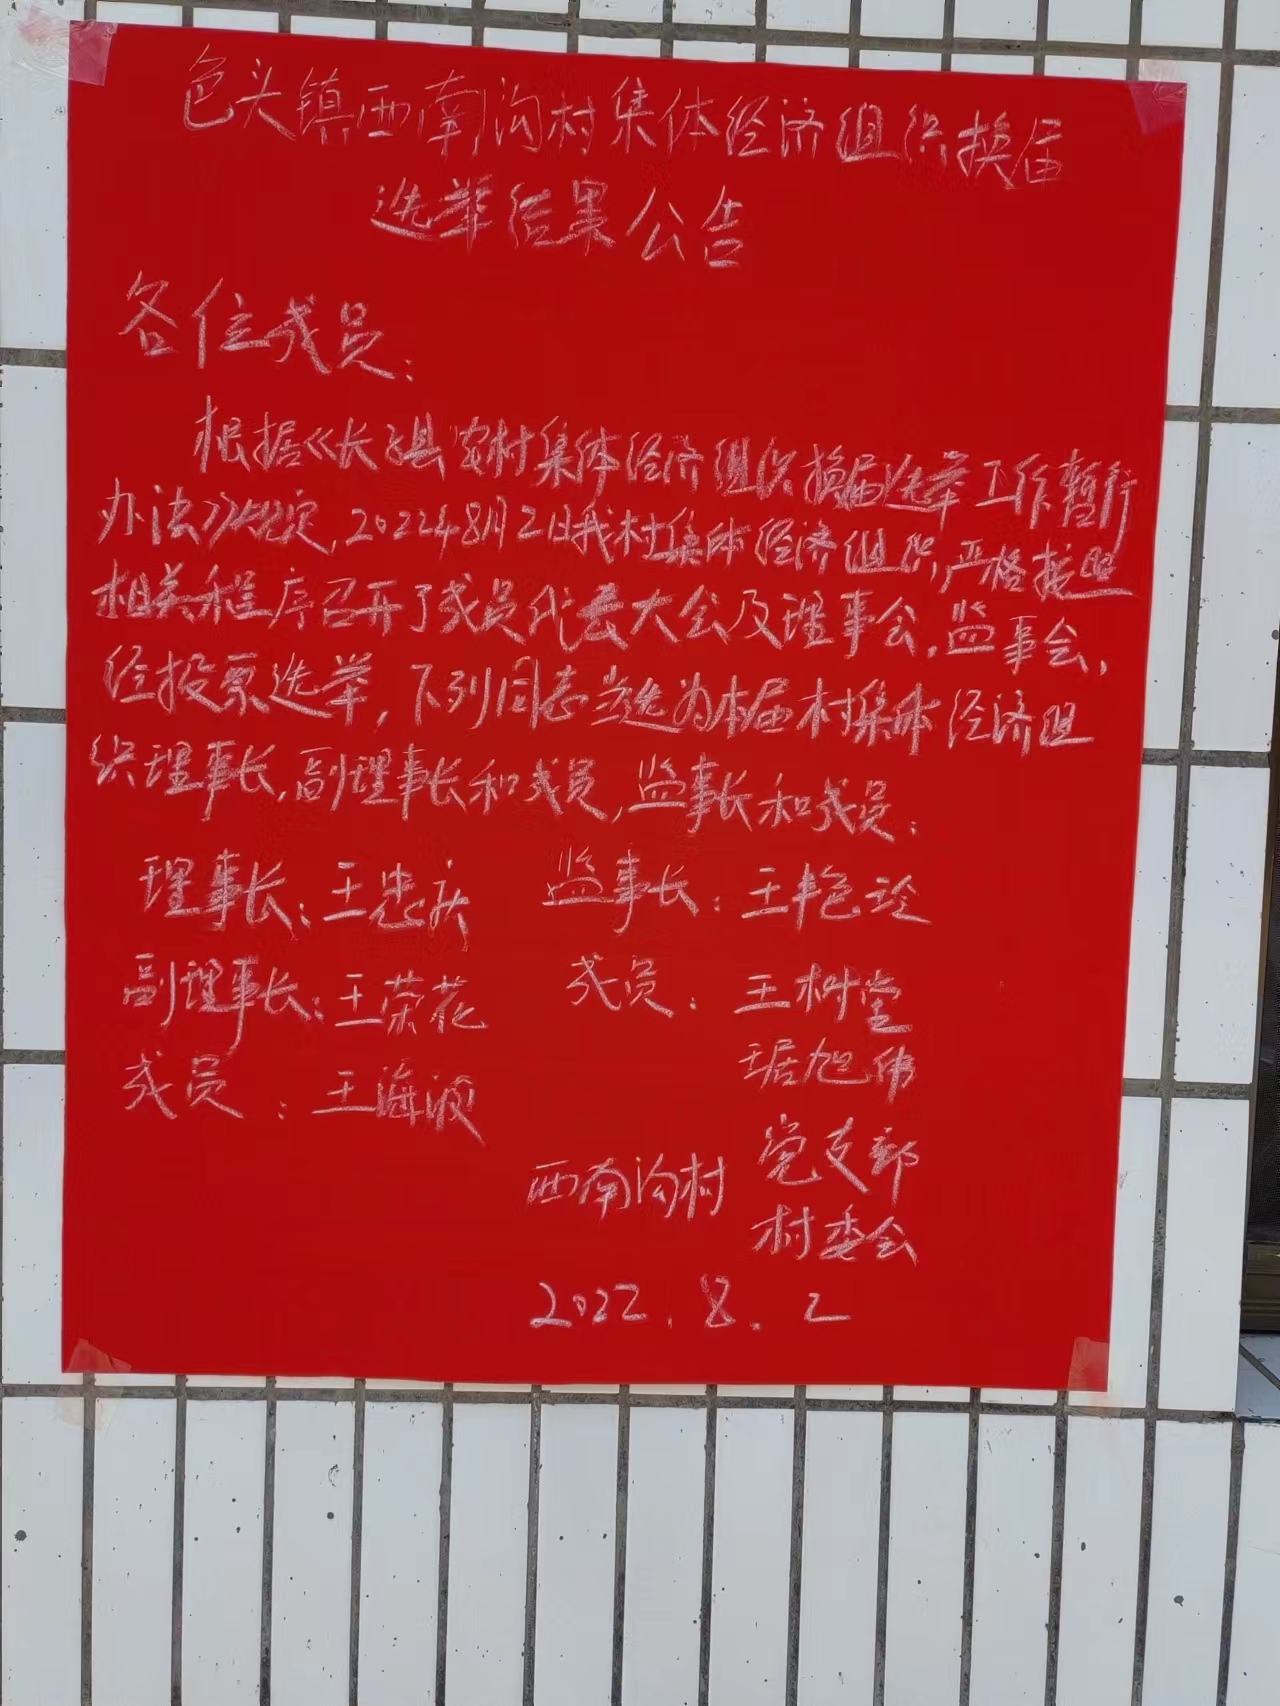 色头镇西南沟村集体经济组织换届
选举结果公告
各位成员：
根据《长子县农村集体经济组织换届选举工作暂行
办法》规定，2022年8月2日我村集体经济组织，严格按照
相关程序召开了成员代表大会及理事会，监事会，
经投票选举，下列同志当选为本届村集体经济组
织理事长，副理事长和成员，监事长和成员：
理事长：王忠庆 监事长：王艳玲
副理事长：王荣花 成员：王树堂
琚旭伟
成员：王海波
西南沟村 党支部
村委会
2022.8.2